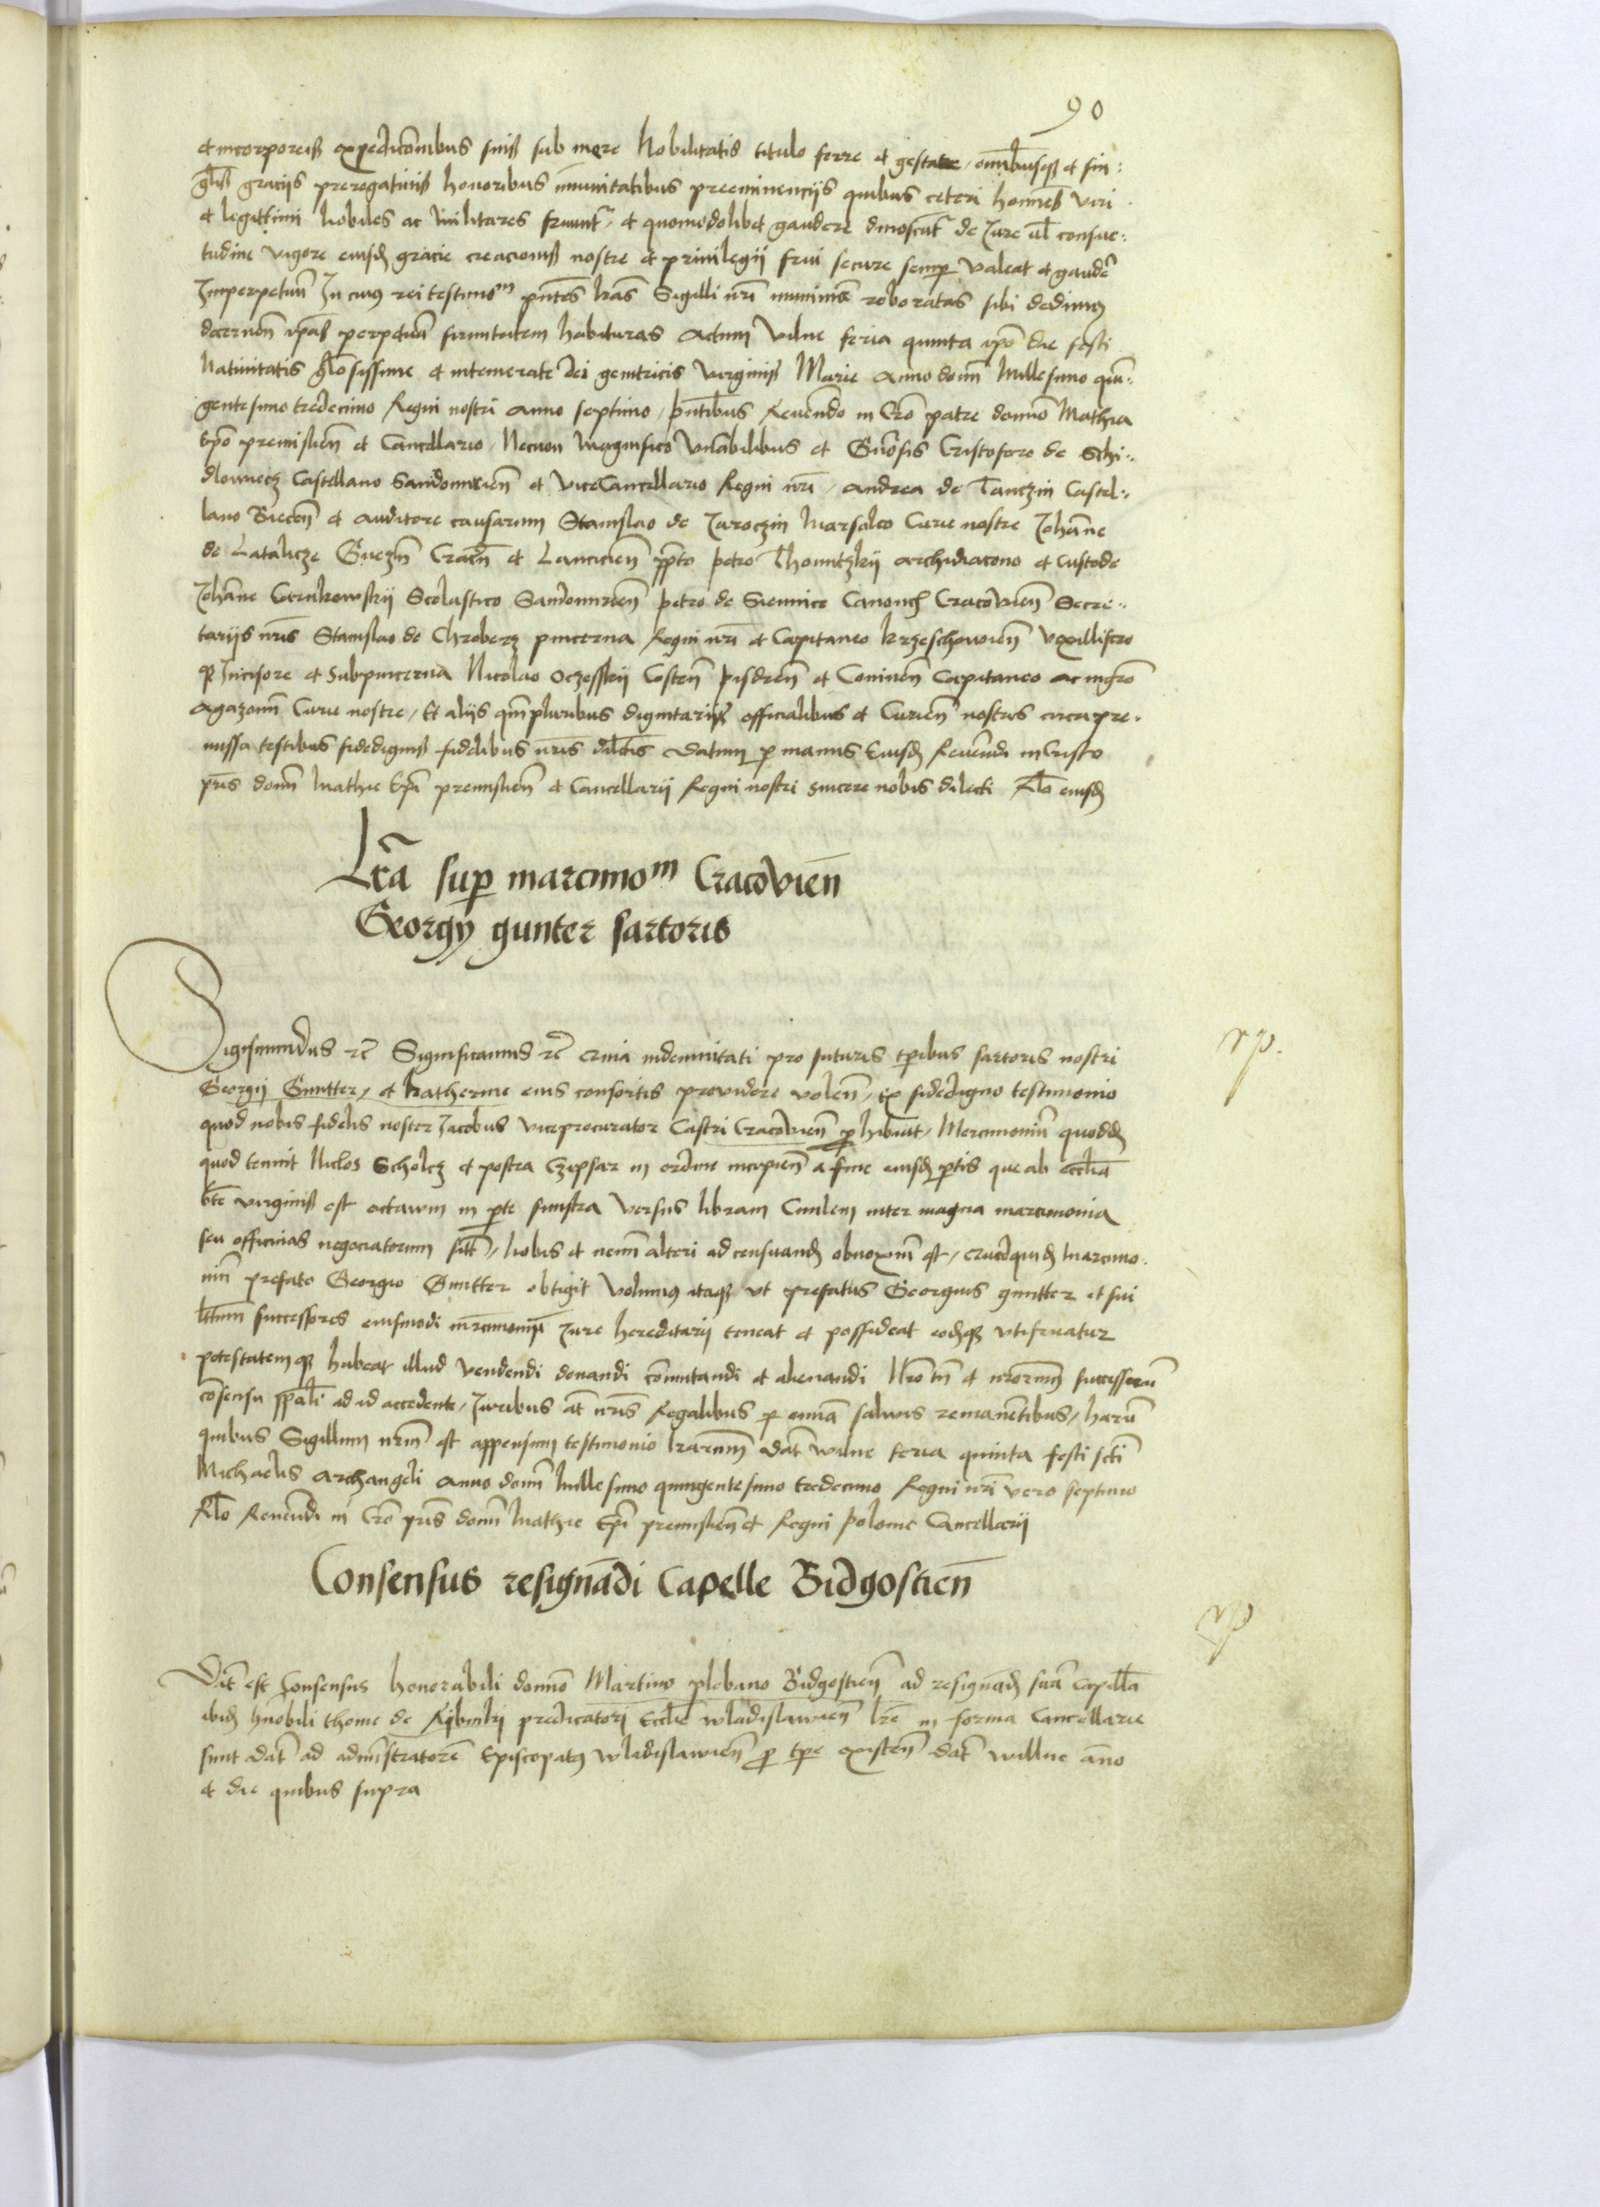 90
et incorporeis expedicōnibus suis sub more Nobilitatis titulo ferre et gestare, omībusq et sin:
gl̄is gracijs prerogatiuis honoribus īmunitatibus preeminencijs quibus ceteri homīes viri
et legittimi Nobiles ac Militares fruunt̄, et quomodolibet gaudere dinoscūt de Jure ul̄ consue:
tudine vigore eiusd gracie creacionis nostre et priuilegij frui secure semp valeat et gaudē
Imperpetuū In cuiq rei testimoᵐ pn̄tes lrās Sigilli nrī munimīe roboratas sibi dedimq
decernen̄ ip̄as perpetuā firmitatem habituras Actum Vilne feria quinta ip̄o die festi
Natiuitatis gl̄osissime et intemerate dei genitricis virginis Marie Anno domī Millesimo quī:
gentesimo tredecimo Regni nostri anno septimo, pn̄tibus Reuerēdo in Crō patre domīo Mathia
Ep̄o premislien̄ et Cancellario, Necnon Magnifico Vn̄abilibus et Gn̄osis Cristofero de Schi:
dlowyecz Castellano Sandomirien̄ et ViceCancellario Regni nrī, Andrea de Tanczin Castel:
lano Biecen̄ et Auditore causarum Stanislao de Jaroczin Marsalco Curie nostre Johāne
de Latalicze Gnezn̄ Cracn̄ et Lancicien̄ pp̄to petro Thomitzkij archidiacono et custode
Johāne Cernkowskij Scolastico Sandomirien̄ petro de Siennico Canonich Cracovien̄ Secre:
tarijs nrīs Stanislao de Chroberz pincerna Regni nrī et Capitaneo krzeschowien̄ Vexillifero
Incisore et Subpincerna Nicolao Oczesskij Costen̄ pisdren̄ et Coninen̄ Capitaneo ac mgrō
agazonū Curie nostre, Et alijs q̄mpluribus dignitarijs officialibus et Curien̄ nostris circa pre:
missa testibus fidedignis fidelibus nrīs dilectis Datum p manus Eiusd Reuerēdi in Cristo
pr̄is domī Mathie Ep̄i premislien̄ et Cancellarij Regni nostri sincere nobis dilecti Rl̄o eiusd
Lrā sup marcimoᵐ Cracovien̄
Georgij gunter sartoris
Sigismundus rc̄ Significamus rc̄ Quia indemnitati pro futuris tp̄ibus sartoris nostri
Georgij Guntter, et katherine eius consortis prouidere volen̄, Ex fidedigno testimonio
quod nobis fidelis noster Jacobus viceprocurator Castri Cracovien̄ phibuit, Mercimoniū quodd
quod tenuit Niclos Scholcz et postea Czepsar in ordine incipien̄ a fine eiusd ptis que ab eccl̄ia
btē virginis est octauum in pte sinistra versus libram Ciuilem inter magna marcimonia
seu officinas negociatorum sitū, Nobis et nemī alteri ad censuand obnoxiū est,
niū prefato Georgio Guntter obtigit Volumq itaq ut prefatus Georgius guntter et sui
ltīmi successores eiusmodi mrcimoniū Jure hereditarij teneat et possideat eodq vtifruatur
potestatemq habeat illud vendendi donandi cōmutandi et alienandi Nrō tn̄ et nrōrum successorū
cōsensu spāli ad id accedente, Juribus at̄ nrīs Regalibus p omīa saluis remanētibus, harū
quibus Sigillum nrm̄ est appensum testimonio lrārum Dat̄ wilne feria quinta festi sctī
Michaelis Archangeli Anno domī Millesimo quingentesimo tredecimo Regni nrī vero septimo
Rl̄o Reuerēdi in Crō pr̄is domī Mathie Ep̄i premislien̄ et Regni polonie Cancellarij
Consensus resignādi Capelle Bidgostien̄
Dat̄ est Consensus honorabili domīo Martino plebano Bidgostien̄ ad resignād suā Capell̄a
ibid hn̄obili thome de Ribinkij predicatori Eccl̄ie wladislawien̄ lrē in forma Cancellarie
sunt dat̄ ad admīstratorē Episcopatq wladislawien̄ p tp̄e existen̄ Dat̄ willne āno
et die quibus supra